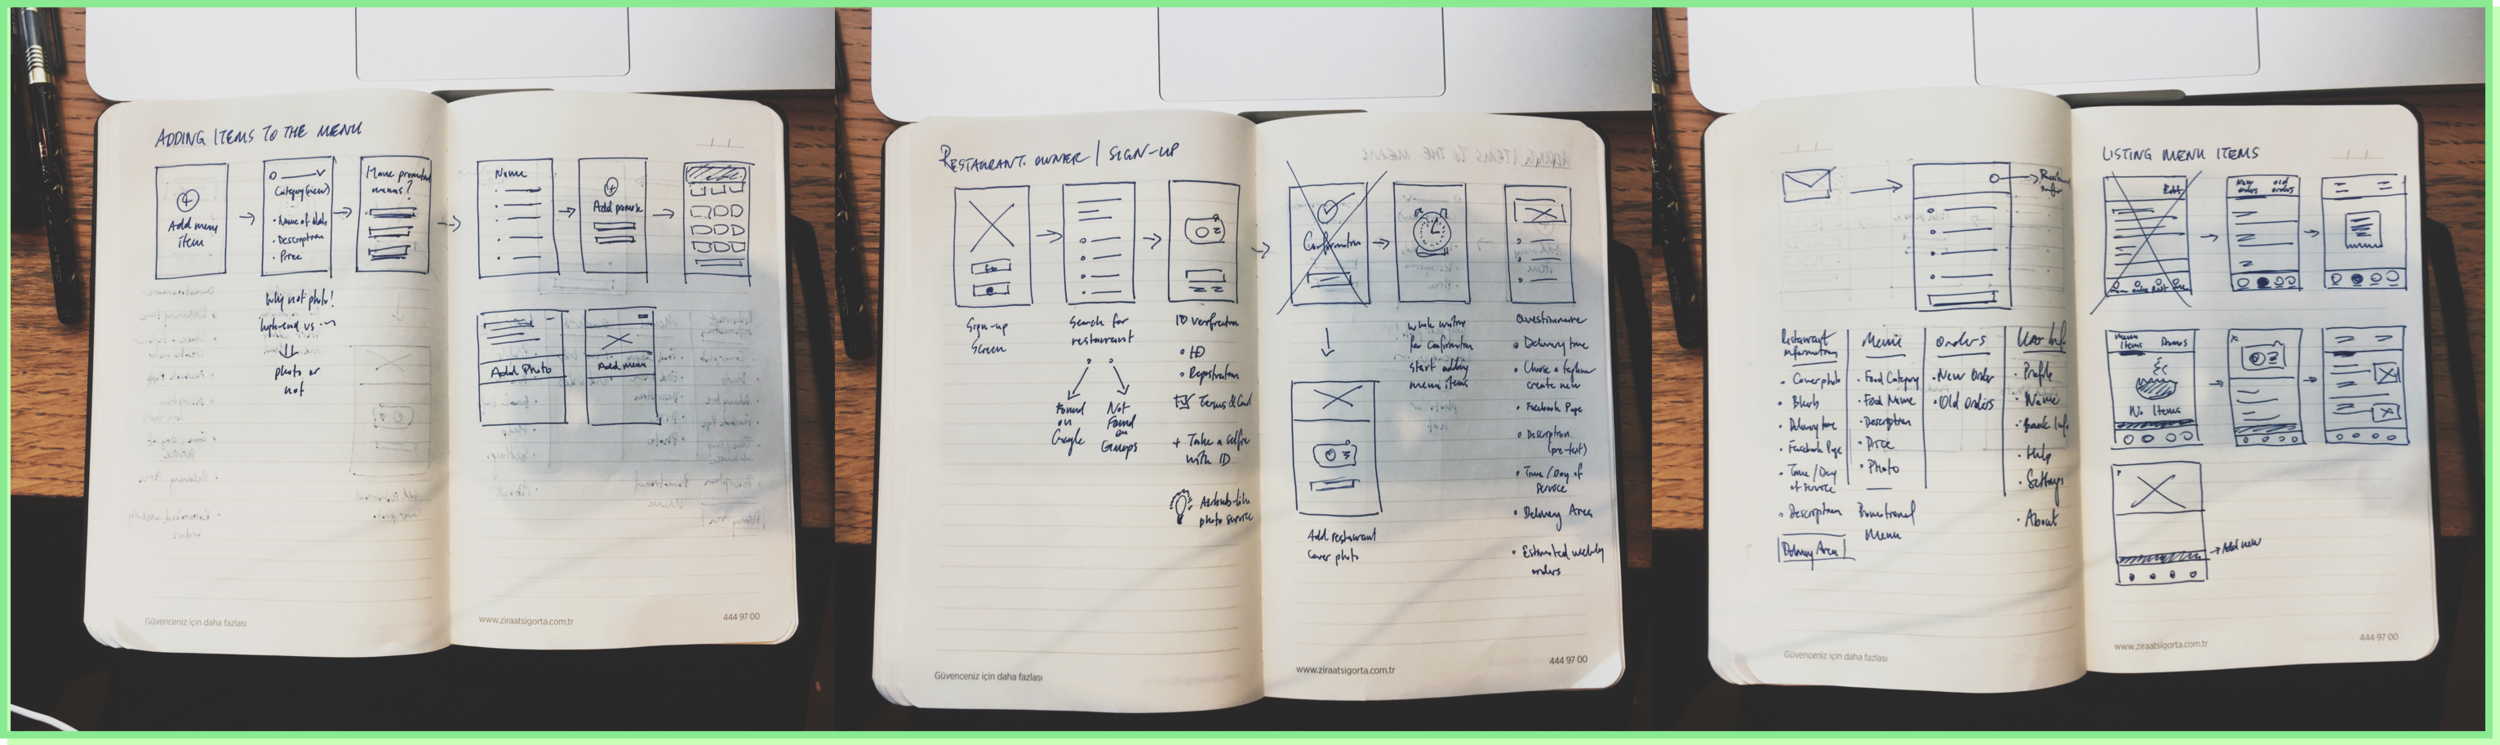 ADDING ITEMS TO THE MENU
Add menu
item
Category (new)
• Name of dish
• Description
• Price
Have promotional
menus?
Why not photo!
high-end vs
photo or
not
Name
Add promose
Add Photo
Add menu
Güvenceniz için daha fazlası
www.ziraatsigorta.com.tr
444 97 00
RESTAURANT OWNER / SIGN-UP
Sign-up
Screen
Search for
restaurant
Found
on
Google
Not
Found
on
Google
ID verification
• ID
• Registration
Terms & Cond
+ Take a selfie
with ID
Airbnb-like
photo service
Confirmation
Add restaurant
cover photo
while waiting
for confirmation
start adding
menu items
Questionnaire
• Delivery time
• Choose a
create new
• Facebook Page
• Description
(pre-text)
• Time/Day of
Service
• Delivery Area
• Estimated weekly
orders
Güvenceniz için daha fazlası
www.ziraatsigorta.com.tr
444 97 00
Restaurant
info
Restaurant
information
• Cover photo
• Blurb
• Delivery time
• Facebook Page
• Time/Day
of service
• Description
Delivery Area
Menu
• Food Category
• Food Name
• Description
• Price
• Photo
Promotional
Menu
Orders
• New Order
• Old Orders
User Info
• Profile
• Name
• Bank Info
• Help
• Settings
• About
Güvenceniz için daha fazlası
LISTING MENU ITEMS
Edit
New
orders
Old
orders
Menu
Items
Promos
No Items
Add new
www.ziraatsigorta.com.tr
444 97 00